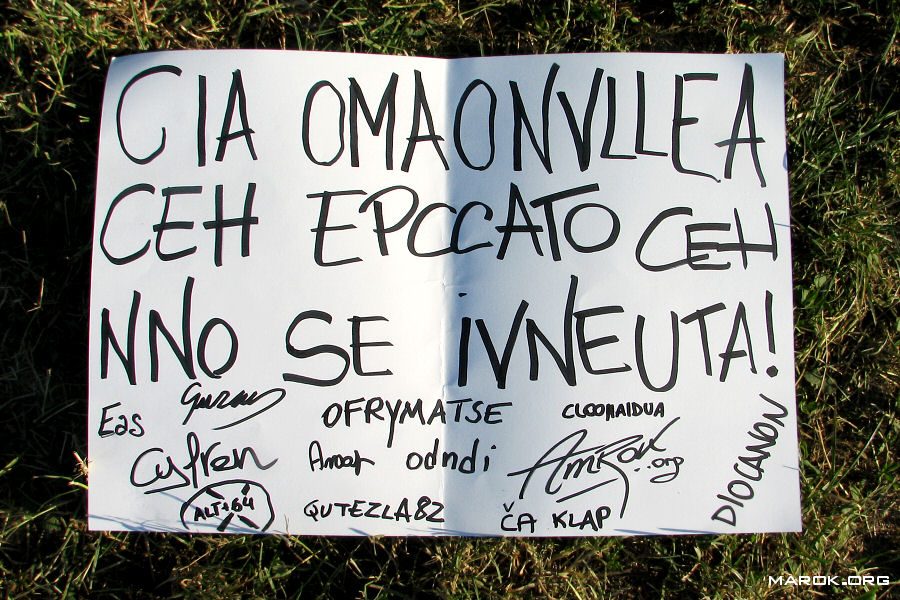 CIA OMAONVLLEA
CEH EPCCATO CEH
NNO SE IVNEUTA!
Eas OFRYMATSE CLOOMAIDUA
Cyfren odndi AmRok..org
DIOCANON
ALT+64 QUTEZLA82 ČA KLAP
MAROK.ORG